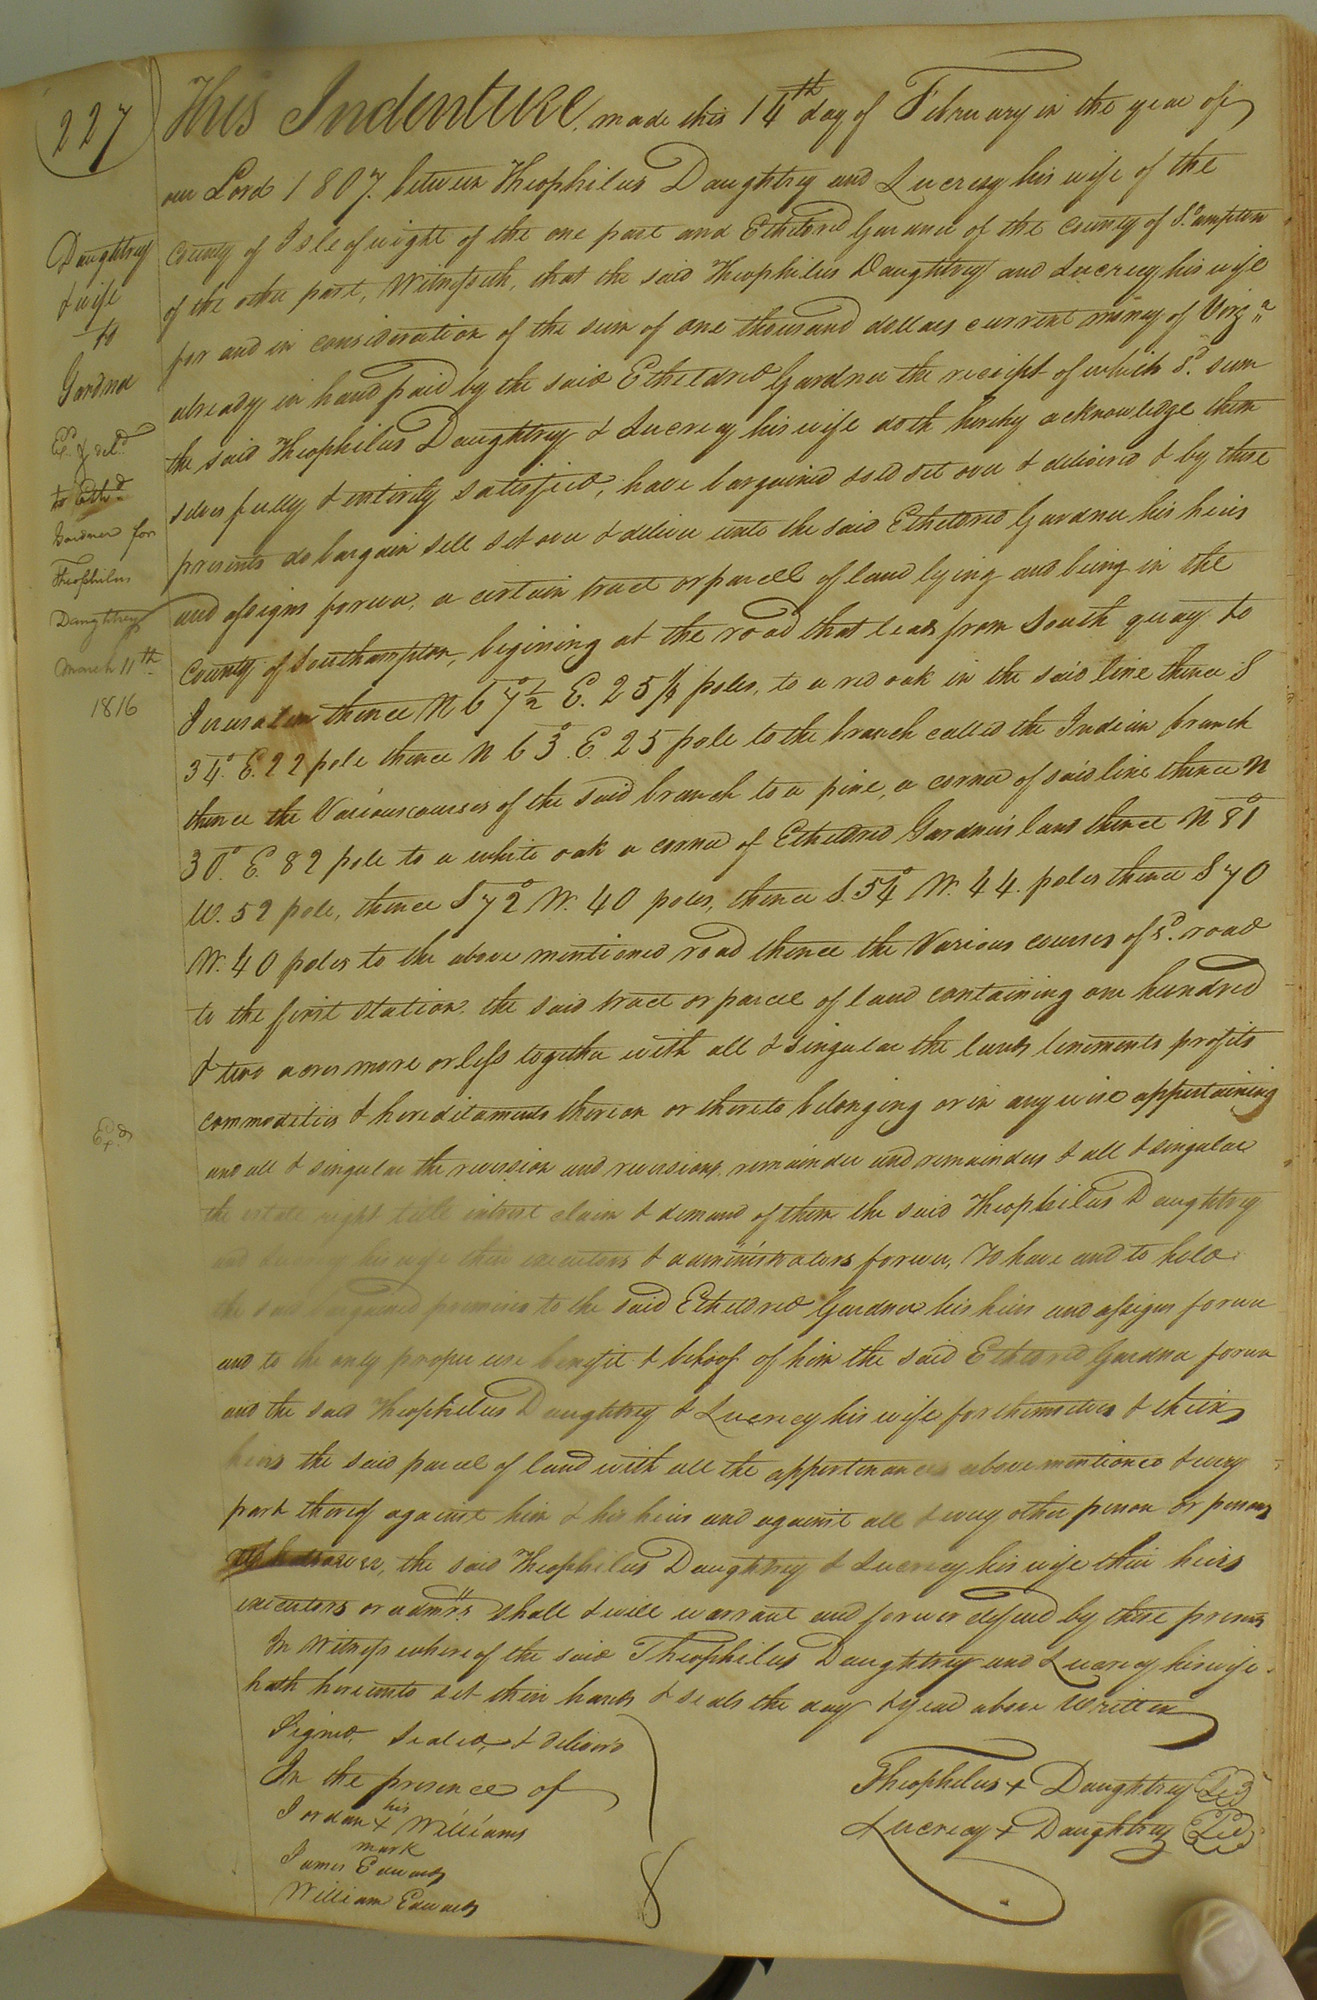 227
Daughtrey
& wife
to
Gardner
Ex.d & del.d
to Ethd
Gardner for
Theophilus
Daughtrey
March 11th
1816
Exd
This Indenture, made this 14th day of February in the year of
our Lord 1807. between Theophilus Daughtrey and Lucresy his wife of the
county of Isle of wight of the one part and Etheldred Gardner of the county of So.ampton
of the other part, Witnesseth, that the said Theophilus Daughtrey and Lucrecy his wife
for and in consideration of the sum of one thousand dollars current money of Virga
already in hand paid by the said Etheldred Gardner the receipt of which sd. sum
the said Theophilus Daughtrey & Lucrecy his wife doth hereby acknowledge them
selves fully & entirely satisfied, have bargained sold set over & delivered & by these
presents do bargain sell set over & deliver unto the said Etheldred Gardner his heirs
and assigns forever, a certain tract or parcel of land lying and being in the
County of Southampton, begining at the road that leads from South quay to
Jerusalem thence N 67°½ E. 25½ poles, to a red oak in the said line thence S
34° E. 22 pole thence N 63° E. 25 pole to the branch called the Indian branch
thence the Various courses of the said branch to a pine, a corner of said line thence N
30° E. 82 pole to a white oak a corner of Etheldred Gardner's land thence N 81°
W. 52 pole, thence S 72° W. 40 poles, thence S. 54° W. 44. poles thence S 70
W. 40 poles to the above mentioned road thence the Various courses of sd. road
to the first station. the said tract or parcel of land containing one hundred
& two acres more or less together with all & singular the lands teniments profits
commodities & hereditaments thereon or thereto belonging or in any wise appertaining
and all & singular the reversion and reversions, remainder and remainders & all & singular
the estate right title intrest claim & demand of them the said Theophilus Daughtrey
and Lucrecy his wife their executors & administrators forever, To have and to hold
the said bargained premises to the said Etheldred Gardner his heirs and assigns forever
and to the only proper use benefit & behoof of him the said Etheldred Gardner forever
and the said Theophilus Daughtrey & Lucrecy his wife for themselves & their
heirs the said parcel of land with all the appertinances above mentioned & every
part thereof against him & his heirs and against all & every other person or persons
whatsoever, the said Theophilus Daughtrey & Lucrecy his wife their heirs
executors or admrs shall & will warrant and forever defend by these presents
In Witness whereof the said Theophilus Daughtrey and Lucrecy his wife
hath hereunto set their hands & seals the day & year above written
Signed, Sealed, & deliver'd
In the presence of
Jordan his + mark Williams
James Edwards
William Edwards
Theophilus + Daughtrey
Lucrecy + Daughtrey